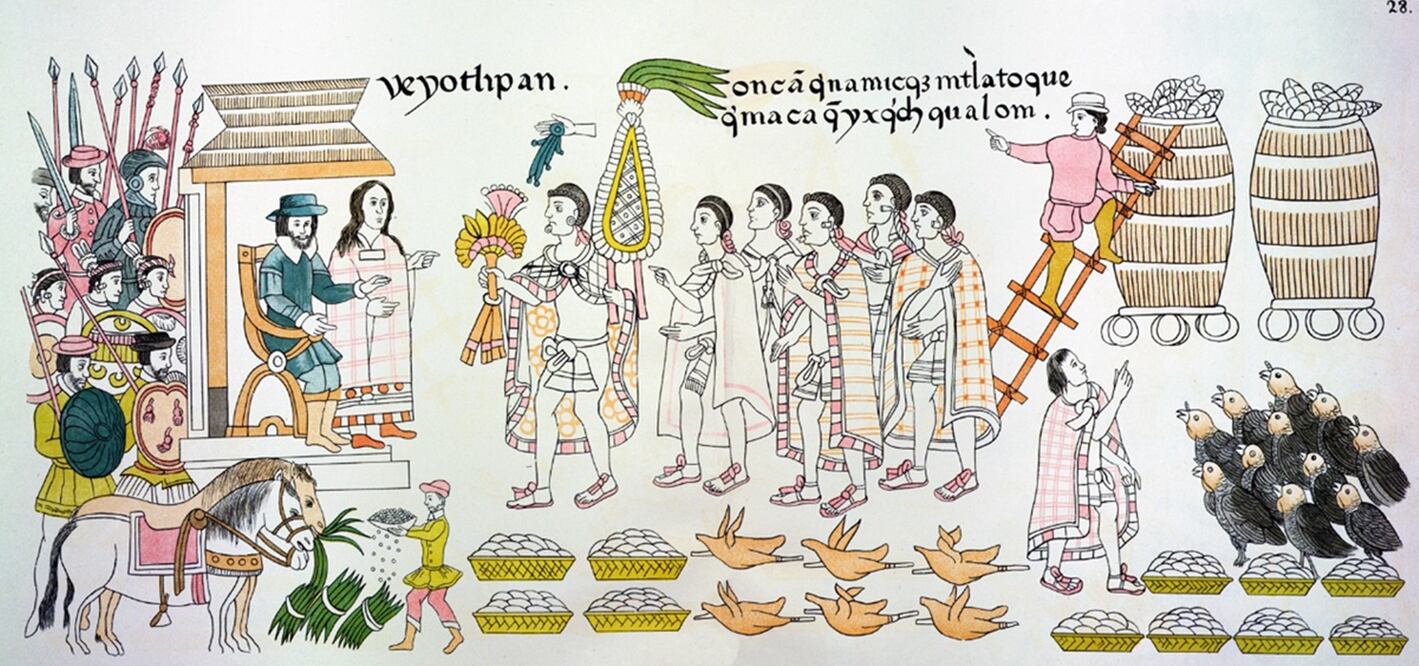 28.
veyotlipan.
oncã q̃namicqȝ intlatoque
q̃maca q̃yxq̃ch qualoni.